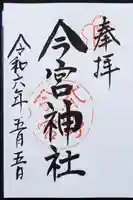 奉拝
今宮神社
令和六年五月五日